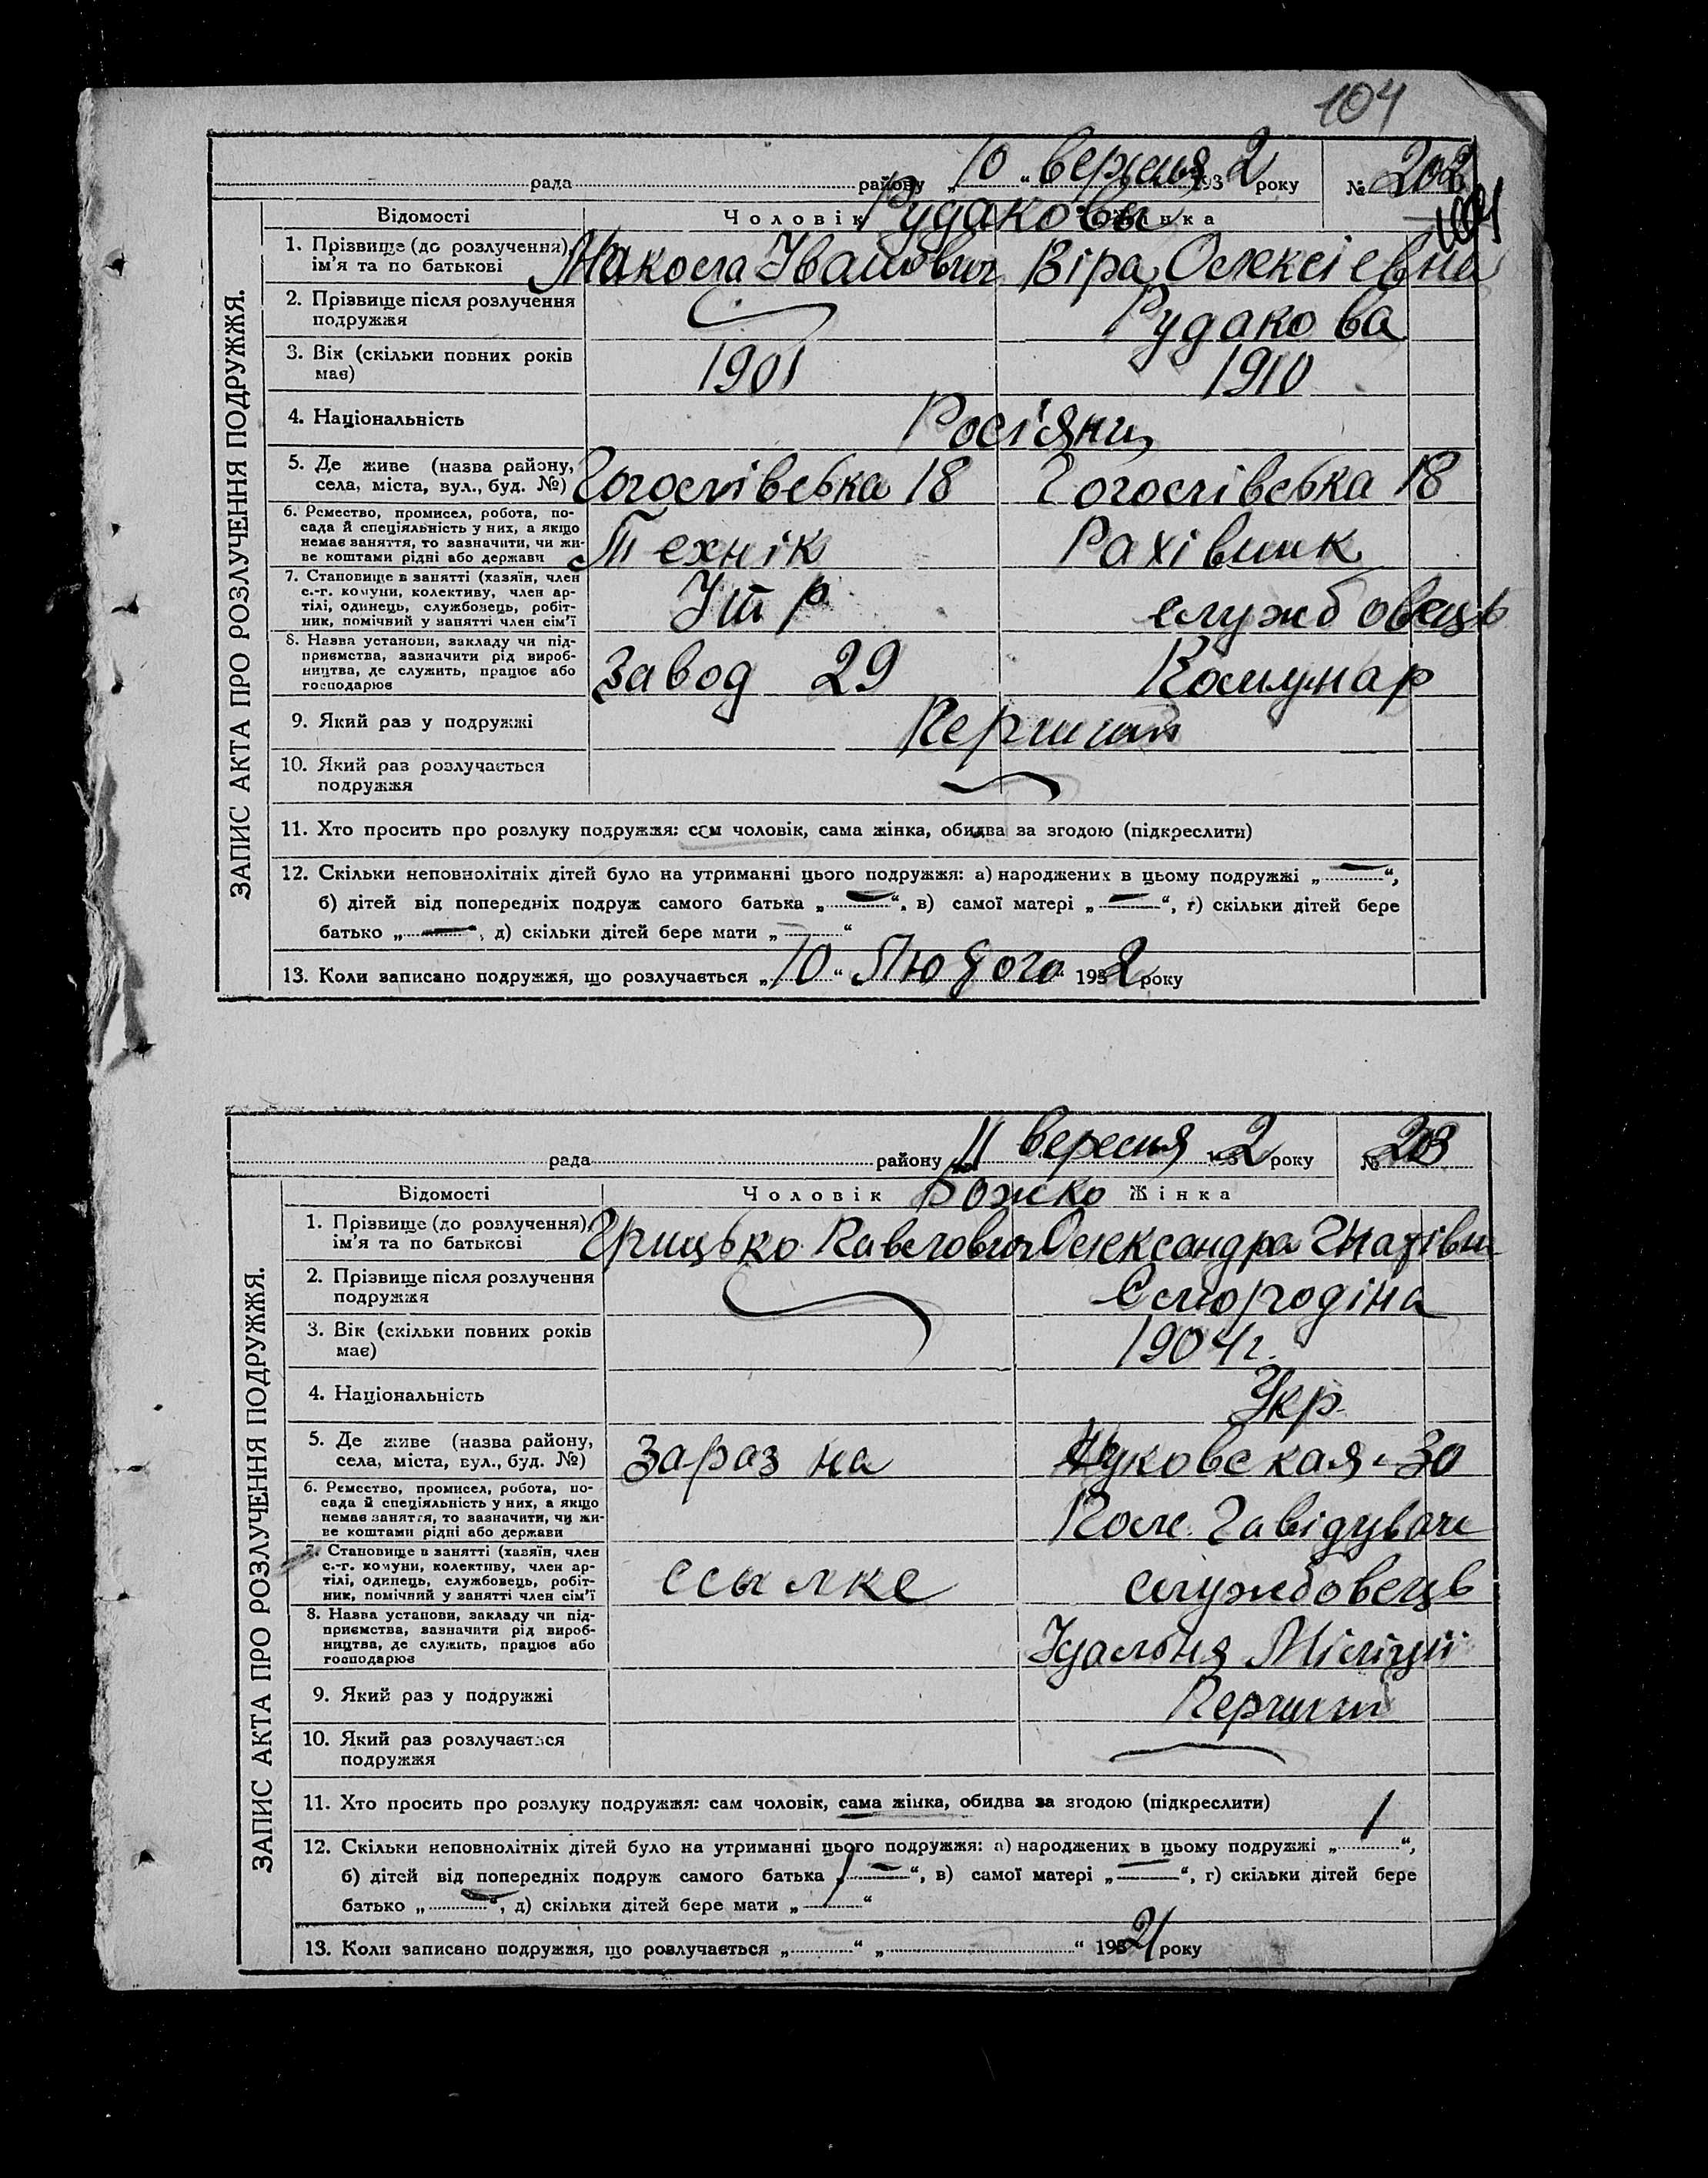 104
рада району „10“ вересня 1932 року № 202
104
Рудакови
Відомості Чоловік Жінка
ЗАПИС АКТА ПРО РОЗЛУЧЕННЯ ПОДРУЖЖЯ.
1. Прізвище (до розлучення), ім'я та по батькові Микола Іванович Віра Олексієвна
2. Прізвище після розлучення подружжя Рудакова
3. Вік (скільки повних років має) 1901 1910
4. Національність Росіяни
5. Де живе (назва району, села, міста, вул., буд. №) Гоголівська 18 Гоголівська 18
6. Ремество, промисел, робота, по-
сада й спеціяльність у них, а якщо
немає заняття, то зазначити, чи жи-
ве коштами рідні або держави Технік Рахівник
7. Становище в занятті (хазяїн, член
с.-г. комуни, колективу, член ар-
тілі, одинець, службовець, робіт-
ник, помічний у занятті член сім'ї Ітр службовець
8. Назва установи, закладу чи під-
приємства, зазначити рід вироб-
ництва, де служить, працює або
господарює Завод 29 Комунар
9. Який раз у подружжі Перший
10. Який раз розлучається подружжя
11. Хто просить про розлуку подружжя: сам чоловік, сама жінка, обидва за згодою (підкреслити)
12. Скільки неповнолітніх дітей було на утриманні цього подружжя: а) народжених в цьому подружжі „—“,
б) дітей від попередніх подруж самого батька „—“, в) самої матері „—“, г) скільки дітей бере
батько „—“, д) скільки дітей бере мати „“
13. Коли записано подружжя, що розлучається „10“ Лютого 1932 року
рада району 11 вересня 1932 року № 203
Божко
Відомості Чоловік Жінка
ЗАПИС АКТА ПРО РОЗЛУЧЕННЯ ПОДРУЖЖЯ.
1. Прізвище (до розлучення), ім'я та по батькові Грицько Павлович Олександра Гнатівн
2. Прізвище після розлучення подружжя Смородіна
3. Вік (скільки повних років має) 1904 г.
4. Національність Укр
5. Де живе (назва району, села, міста, вул., буд. №) Зараз на 30
6. Ремество, промисел, робота, по-
сада й спеціяльність у них, а якщо
немає заняття, то зазначити, чи жи-
ве коштами рідні або держави
7. Становище в занятті (хазяїн, член
с.-г. комуни, колективу, член ар-
тілі, одинець, службовець, робіт-
ник, помічний у занятті член сім'ї ссылке службовець
8. Назва установи, закладу чи під-
приємства, зазначити рід вироб-
ництва, де служить, працює або
господарює Їдальня Міліції
9. Який раз у подружжі Перший
10. Який раз розлучається подружжя
11. Хто просить про розлуку подружжя: сам чоловік, сама жінка, обидва за згодою (підкреслити)
12. Скільки неповнолітніх дітей було на утриманні цього подружжя: а) народжених в цьому подружжі „1“,
б) дітей від попередніх подруж самого батька „—“, в) самої матері „—“, г) скільки дітей бере
батько „—“, д) скільки дітей бере мати „1“
13. Коли записано подружжя, що розлучається „“ „“ 192 року